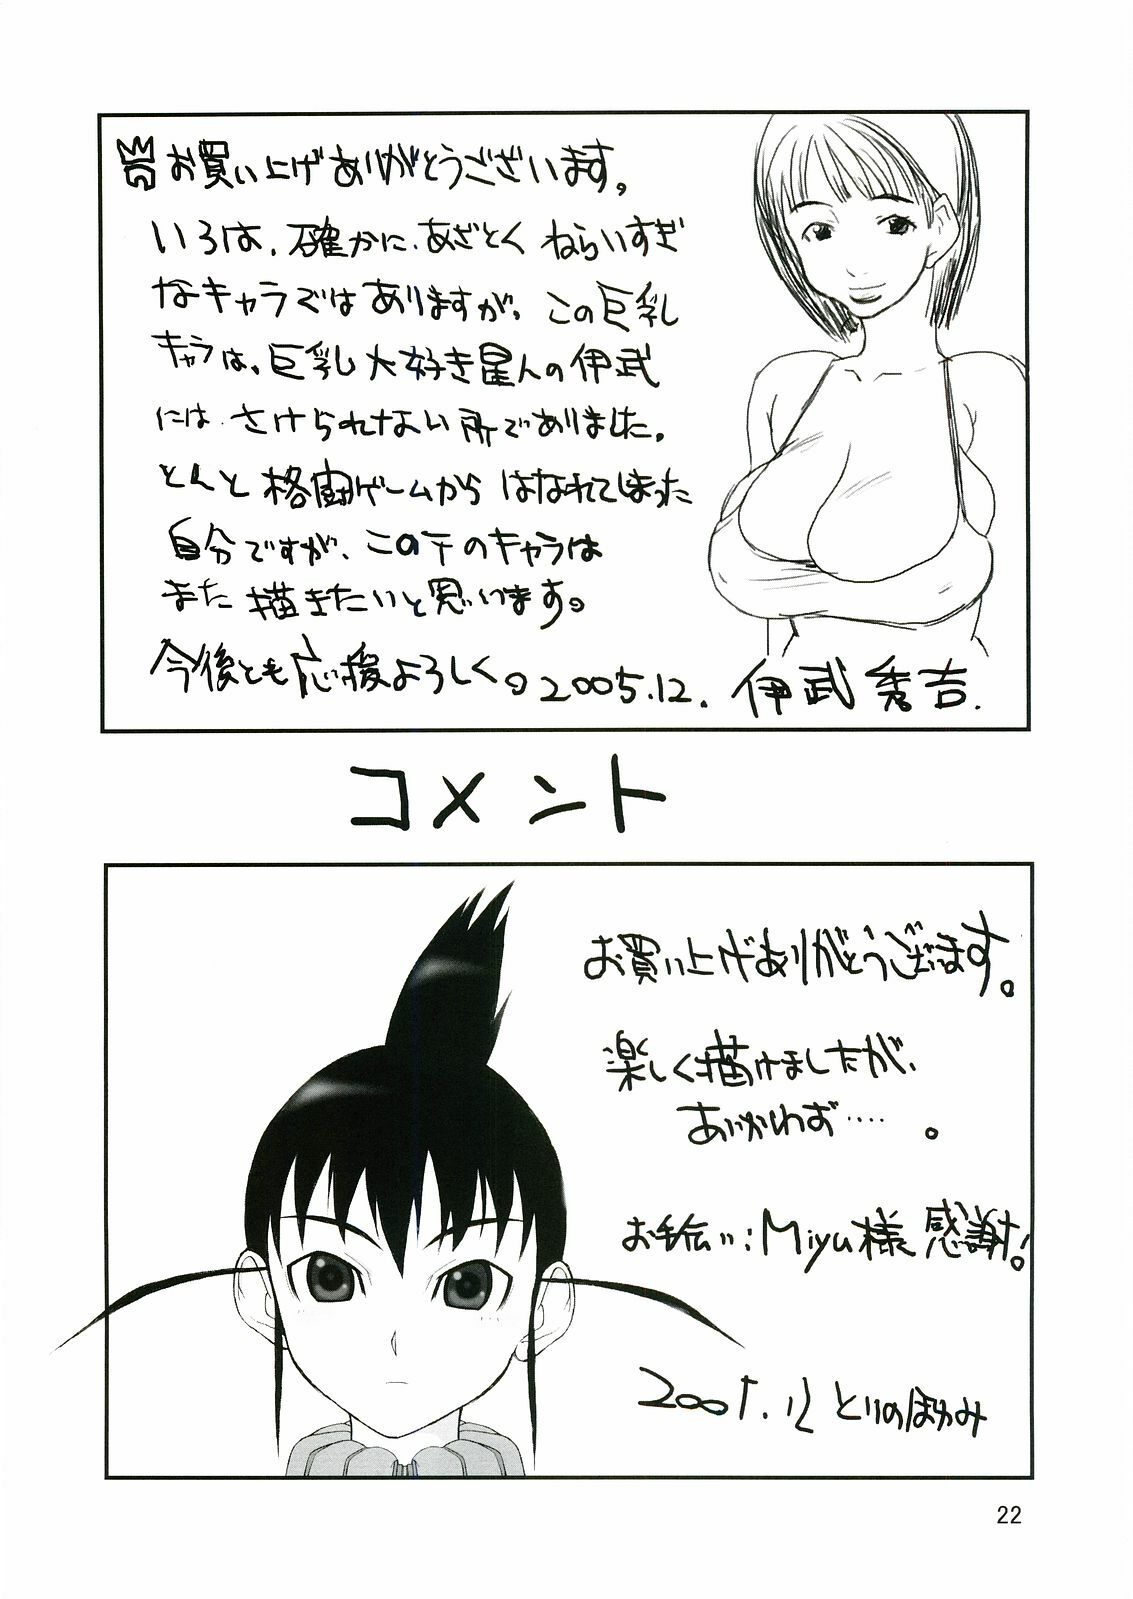 お買い上げありがとうございます。
いろは、確かに、あざとくねらいすぎ
なキャラではありますが、この巨乳
キャラは、巨乳大好き星人の伊武
には、さけられない所でありました。
とんと格闘ゲームからはなれてしまった
自分ですが、この手のキャラは
また描きたいと思います。
今後とも応援よろしく。2005.12. 伊武秀吉.
コメント
お買い上げありがとうございます。
楽しく描けましたが、
あいかわらず・・・・。
お手伝い:Miyu様感謝!
2005.12 とりのほのみ
22